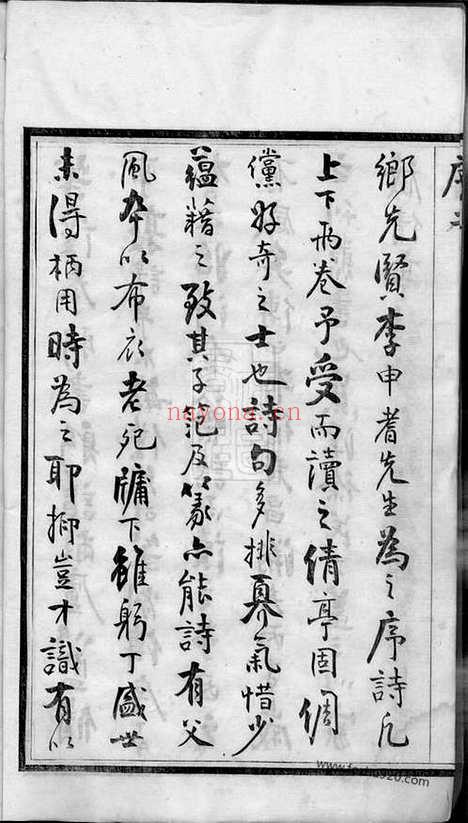 鄉先賢李申耆先生為之序詩凡
上下兩卷予受而讀之倩亭固倜
儻好奇之士也詩句多排奡氣惜少
蘊藉之致其子範及篆亦能詩有父
風卒以布衣老死牖下雖躬丁盛世
未得柄用時為之耶抑豈才識有以
nayona.cn